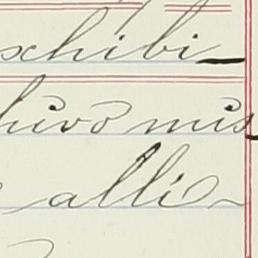 xchibi_
hivo mis
alli